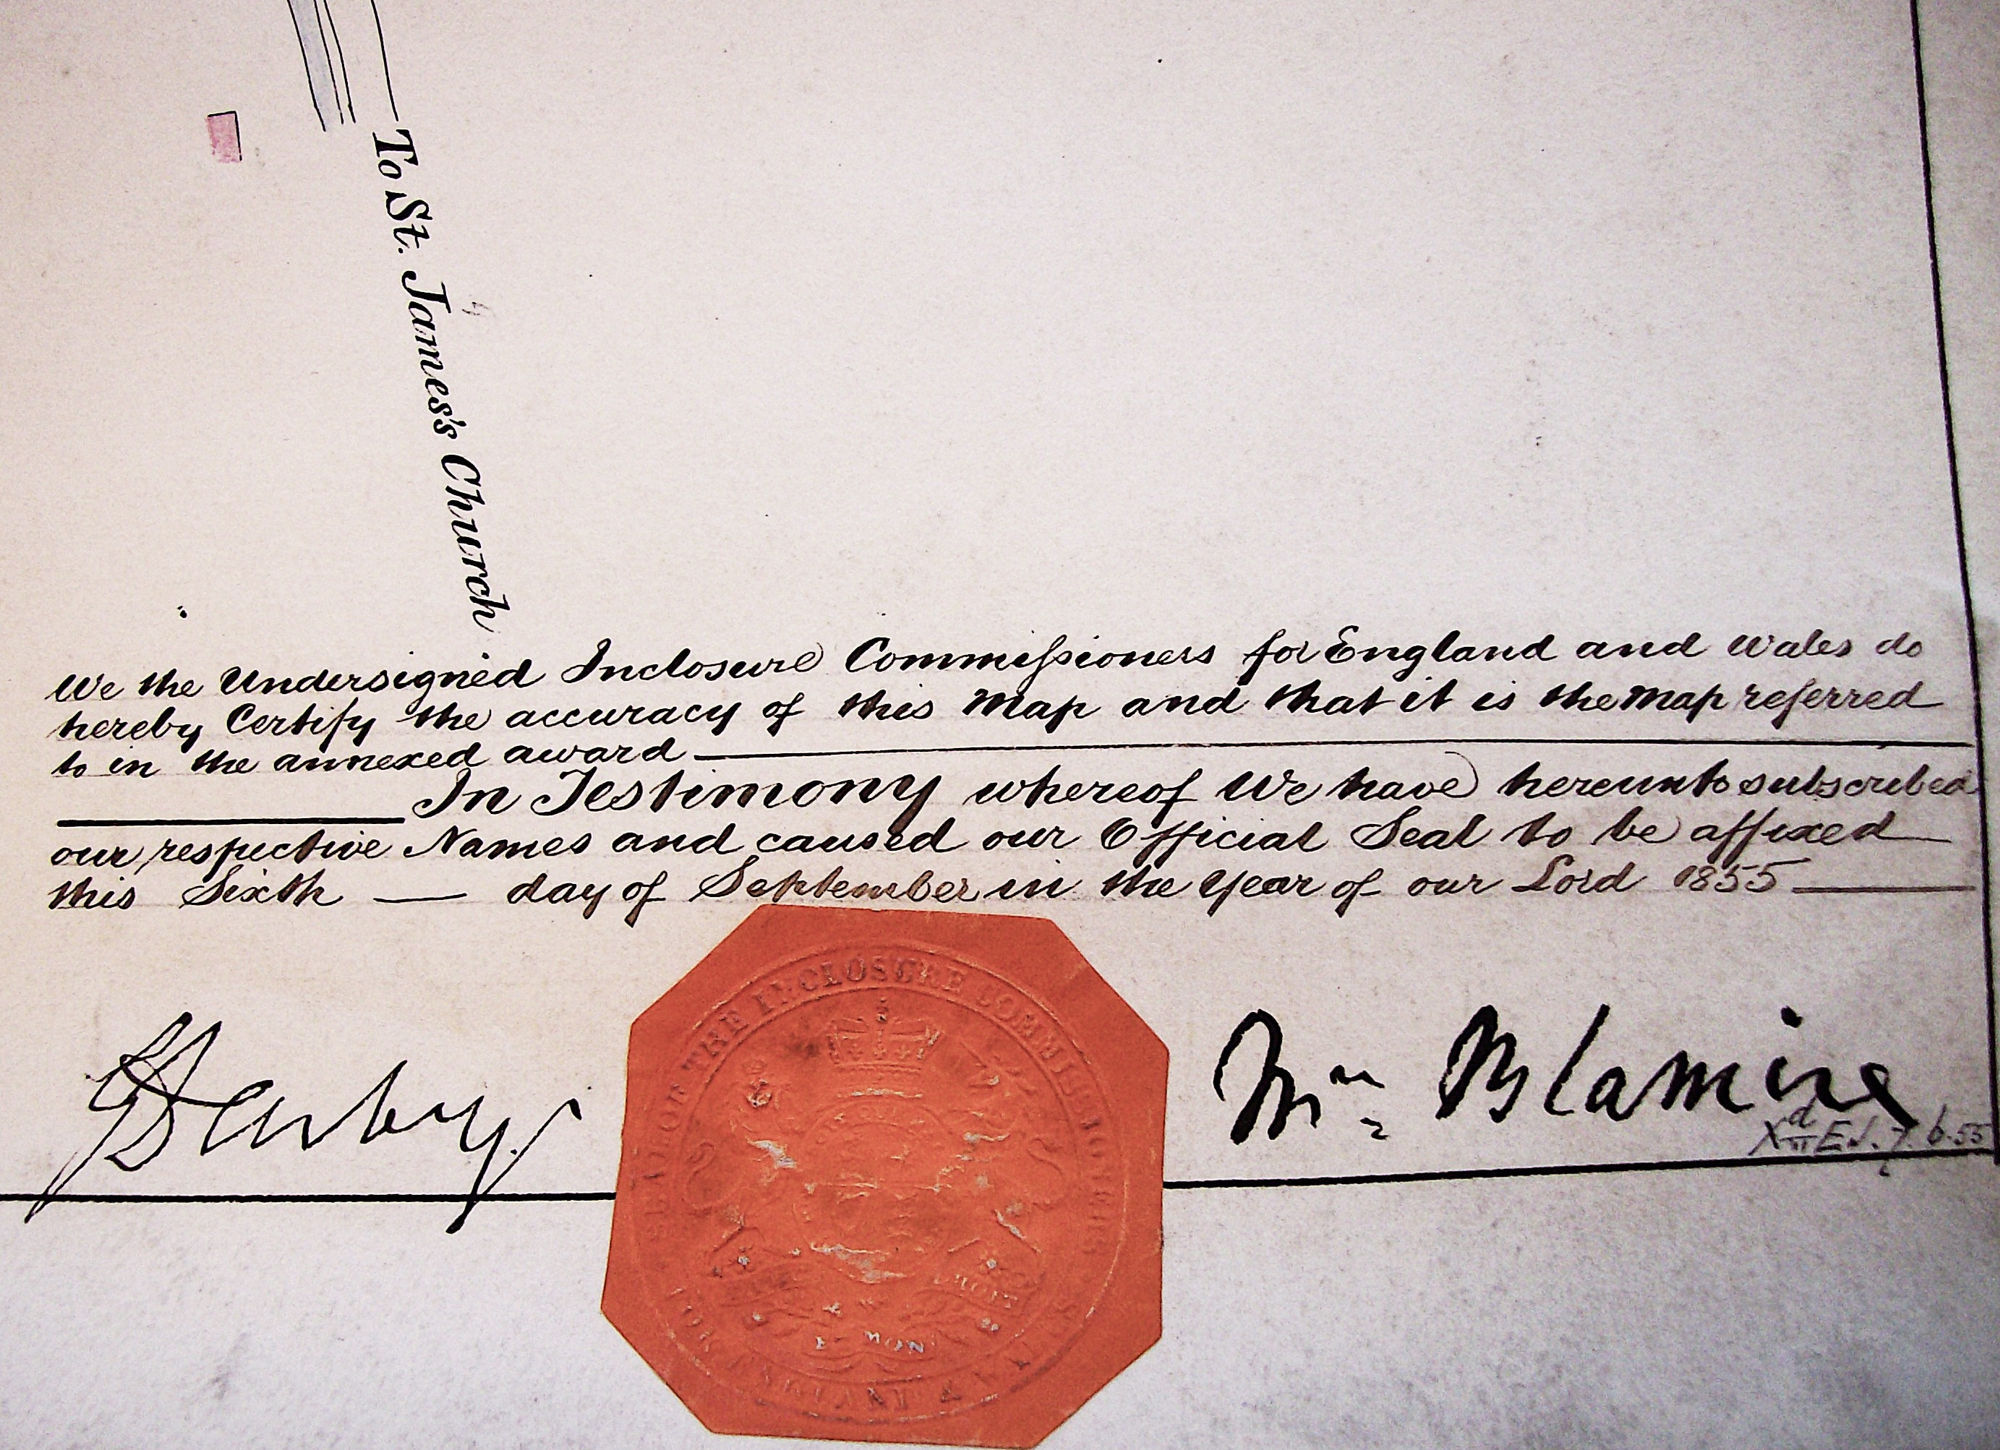 To St. James's Church
We the Undersigned Inclosure Commissioners for England and Wales do
hereby Certify the accuracy of this Map and that it is the Map referred
to in the annexed award
In Testimony whereof We have hereunto subscribed
our respective Names and caused our Official Seal to be affixed
this Sixth — day of September in the Year of our Lord 1855
H Darby
Wm Blamire
SEAL OF THE INCLOSURE COMMISSIONERS
FOR ENGLAND & WALES
DROIT
ET MON